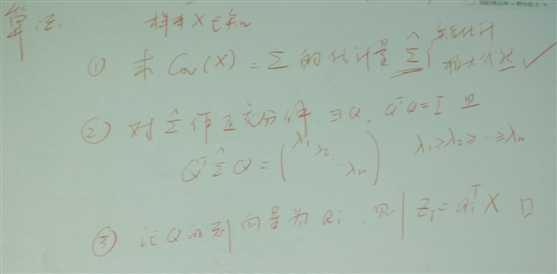 算法. 样本 X ∈ ℝⁿ
① 求 Cov(X) = Σ 的估计量 Σ̂ { 矩估计
极大似然 ✓
② 对 Σ̂ 作正交分解 ∃Q, QᵀQ = I 且
QᵀΣ̂Q = (λ₁ λ₂ ⋱ λₙ) λ₁ ≥ λ₂ ≥ … ≥ λₙ
③ 记 Q 的列向量为 qᵢ, 则 Zᵢ = qᵢᵀX □